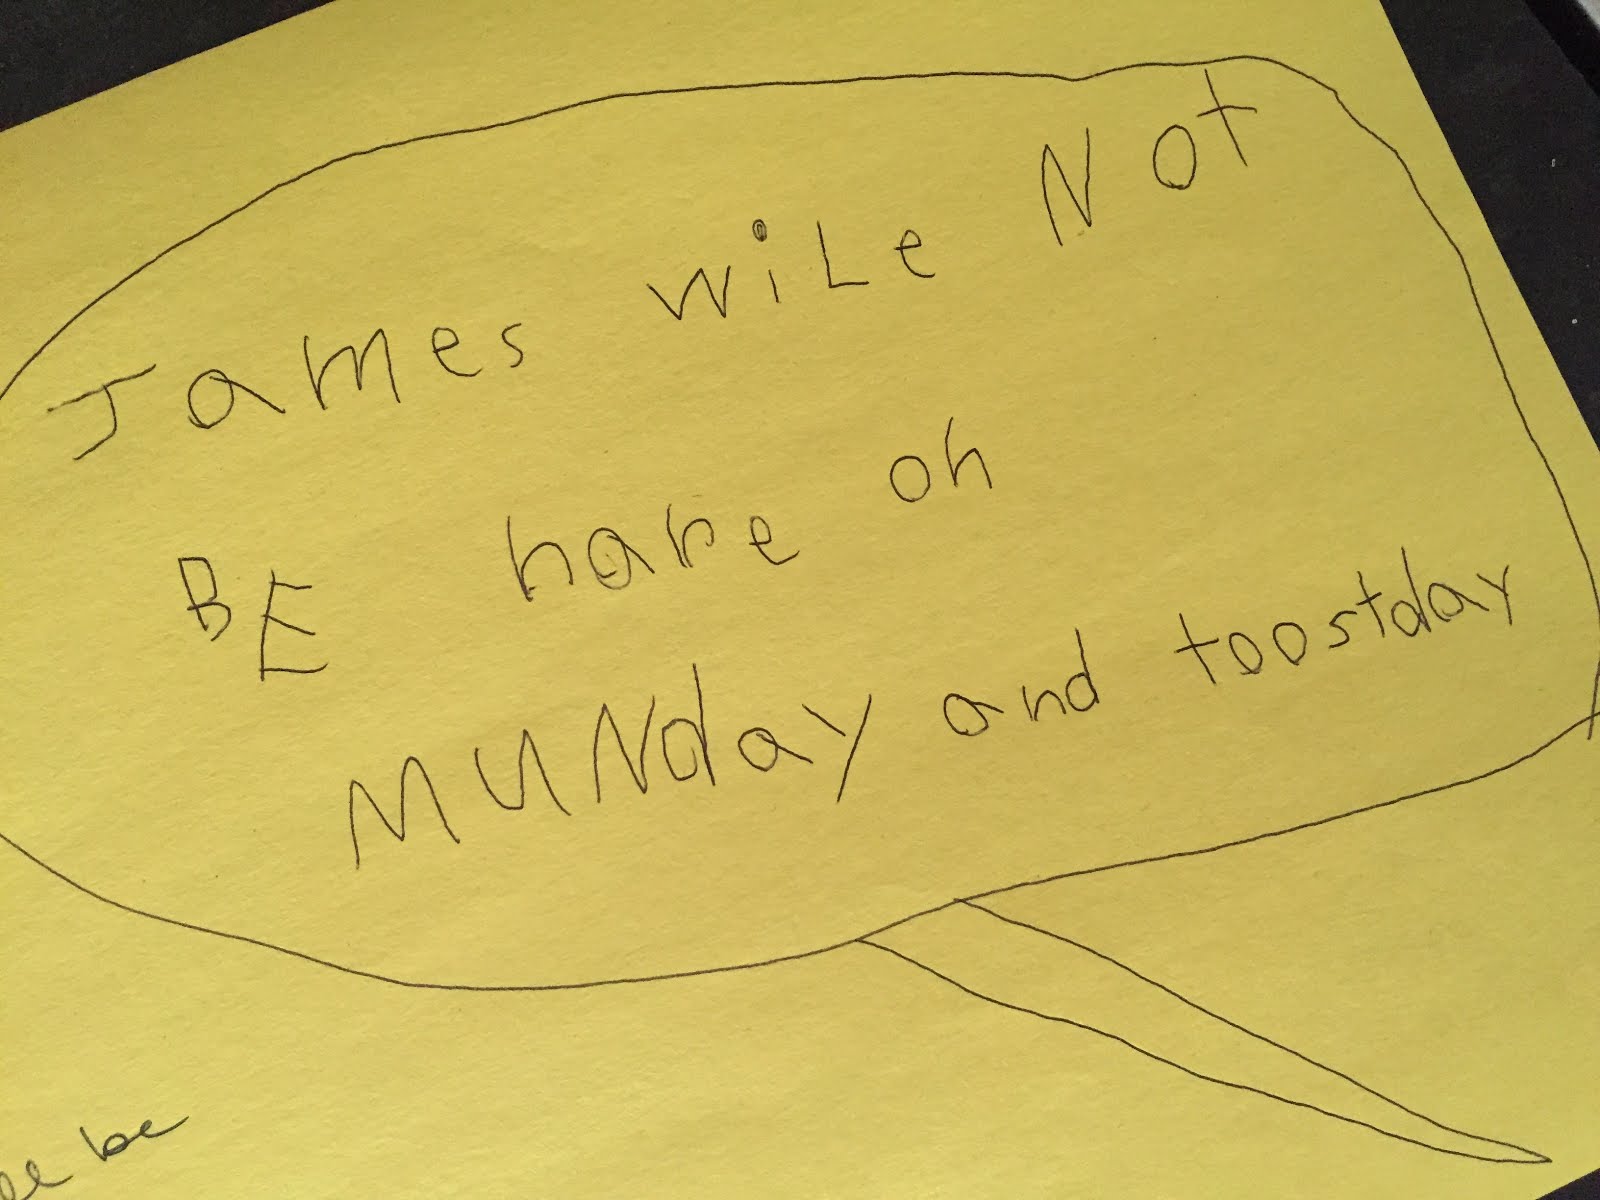 James wiLe Not
BE hare on
MUNday and toostday
be